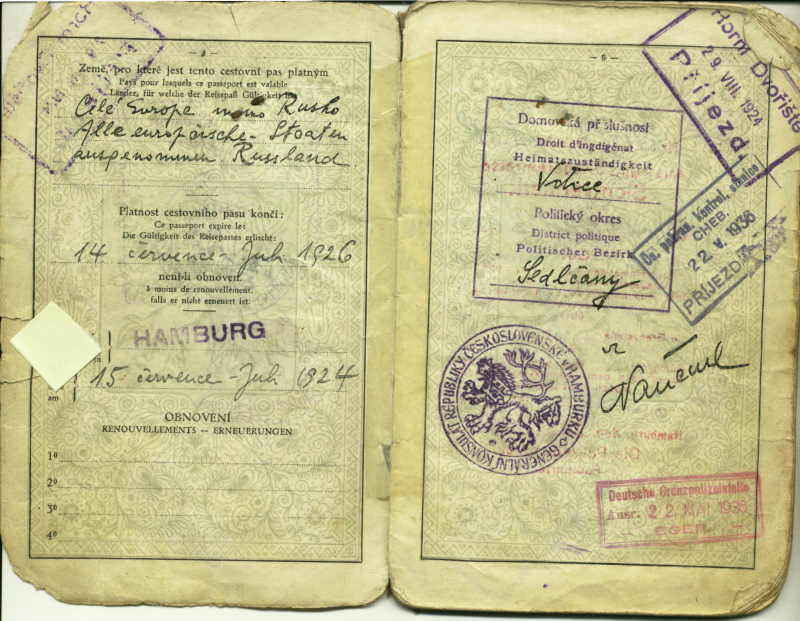 Země, pro které jest tento cestovní pas platným
Pays pour lesquels ce passeport est valable
Länder, für welche der Reisepaß Gültigkeit
Celé Europe mimo Rusko
Alle europäische Staaten
ausgenommen Russland
Platnost cestovního pasu končí:
Ce passeport expire le:
Die Gültigkeit des Reisepasses erlischt:
14 července - Juli 1926
není-li obnoven.
à moins de renouvellement.
falls er nicht erneuert ist.
HAMBURG
15 července - Juli 1924
am
OBNOVENÍ
RENOUVELLEMENTS — ERNEUERUNGEN
1º
2º
3º
4º
— 6 —
Horní Dvořiště
29 VIII. 1924
Příjezd.
Domovská příslušnost
Droit d'indigénat
Heimatszuständigkeit
Votice
Politický okres
District politique
Politischer Bezirk
Sedlčany
kontrol.
CHEB.
22 V. 1936
PŘÍJEZD
GENERÁLNÍ KONSULÁT REPUBLIKY ČESKOSLOVENSKÉ V HAMBURKU
Deutsche Grenzpolizeistelle
Ausr. 22 MAI 1936
EGER